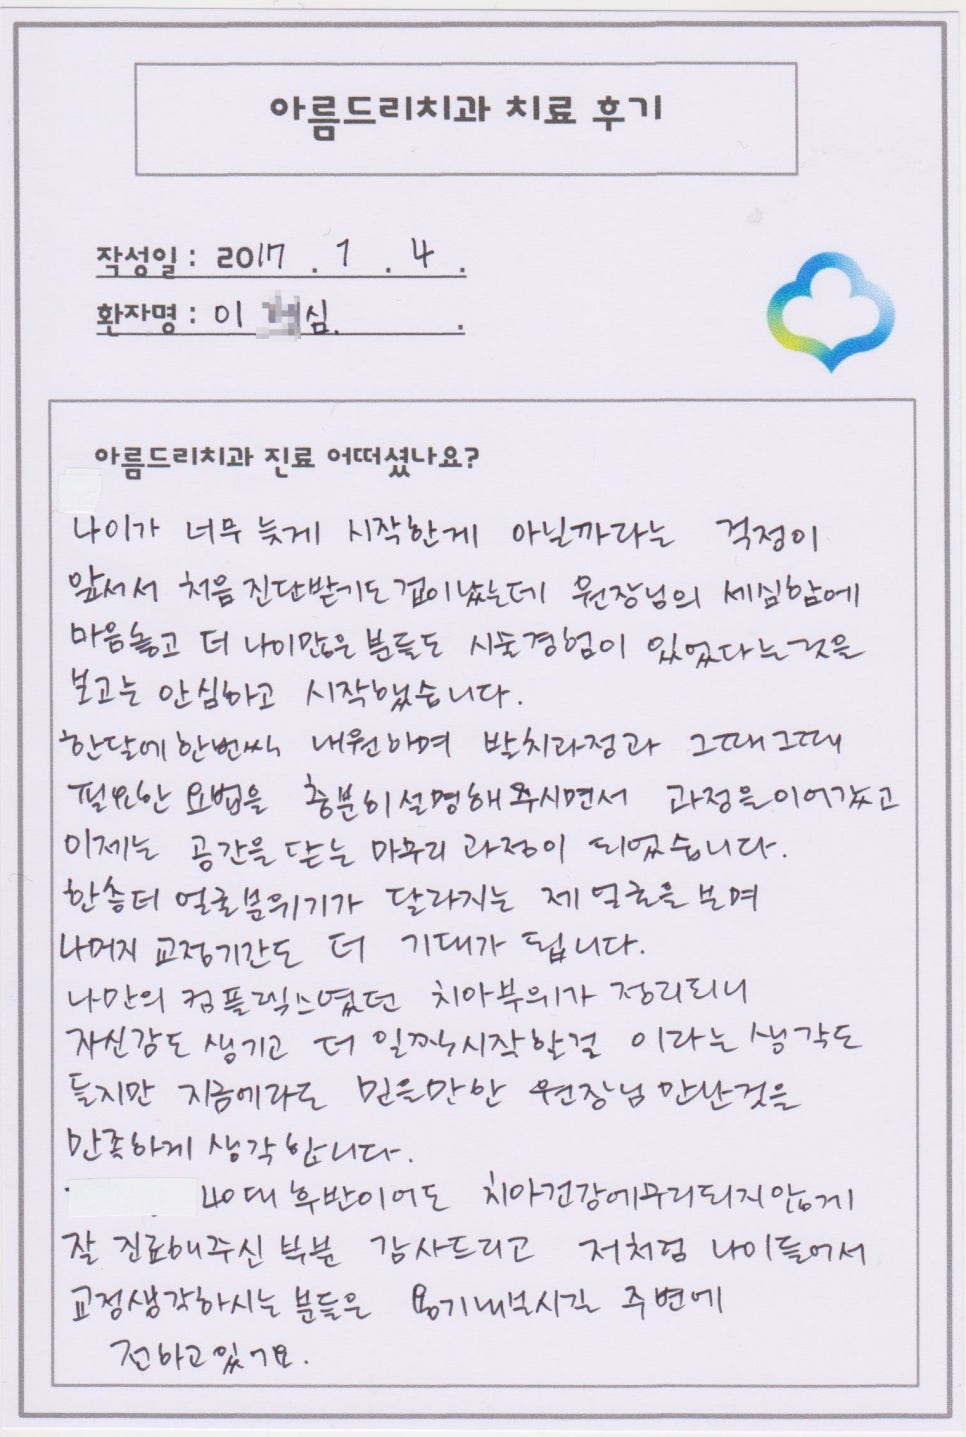 아름드리치과 치료 후기
작성일 : 2017 . 1 . 4 .
환자명 : 이 심. .
아름드리치과 진료 어떠셨나요?
나이가 너무 늦게 시작한게 아닐까라는 걱정이
앞서서 처음 진단받기도 겁이났는데 원장님의 세심함에
마음놓고 더 나이많은 분들도 시술경험이 있었다는것을
보고는 안심하고 시작했습니다.
한달에 한번씩 내원하며 발치과정과 그때그때
필요한 요법을 충분히 설명해주시면서 과정을 이어갔고
이제는 공간을 닫는 마무리 과정이 되었습니다.
한층더 얼굴분위기가 달라지는 제 얼굴을 보며
나머지 교정기간도 더 기대가 됩니다.
나만의 컴플렉스였던 치아부위가 정리되니
자신감도 생기고 더 일찍시작할걸 이라는 생각도
들지만 지금에라도 믿을만한 원장님 만난것을
만족하게 생각합니다.
40대 후반이어도 치아건강에무리되지않게
잘 진료해주신 부분 감사드리고 저처럼 나이들어서
교정생각하시는 분들은 용기내보시길 주변에
전하고있기요.